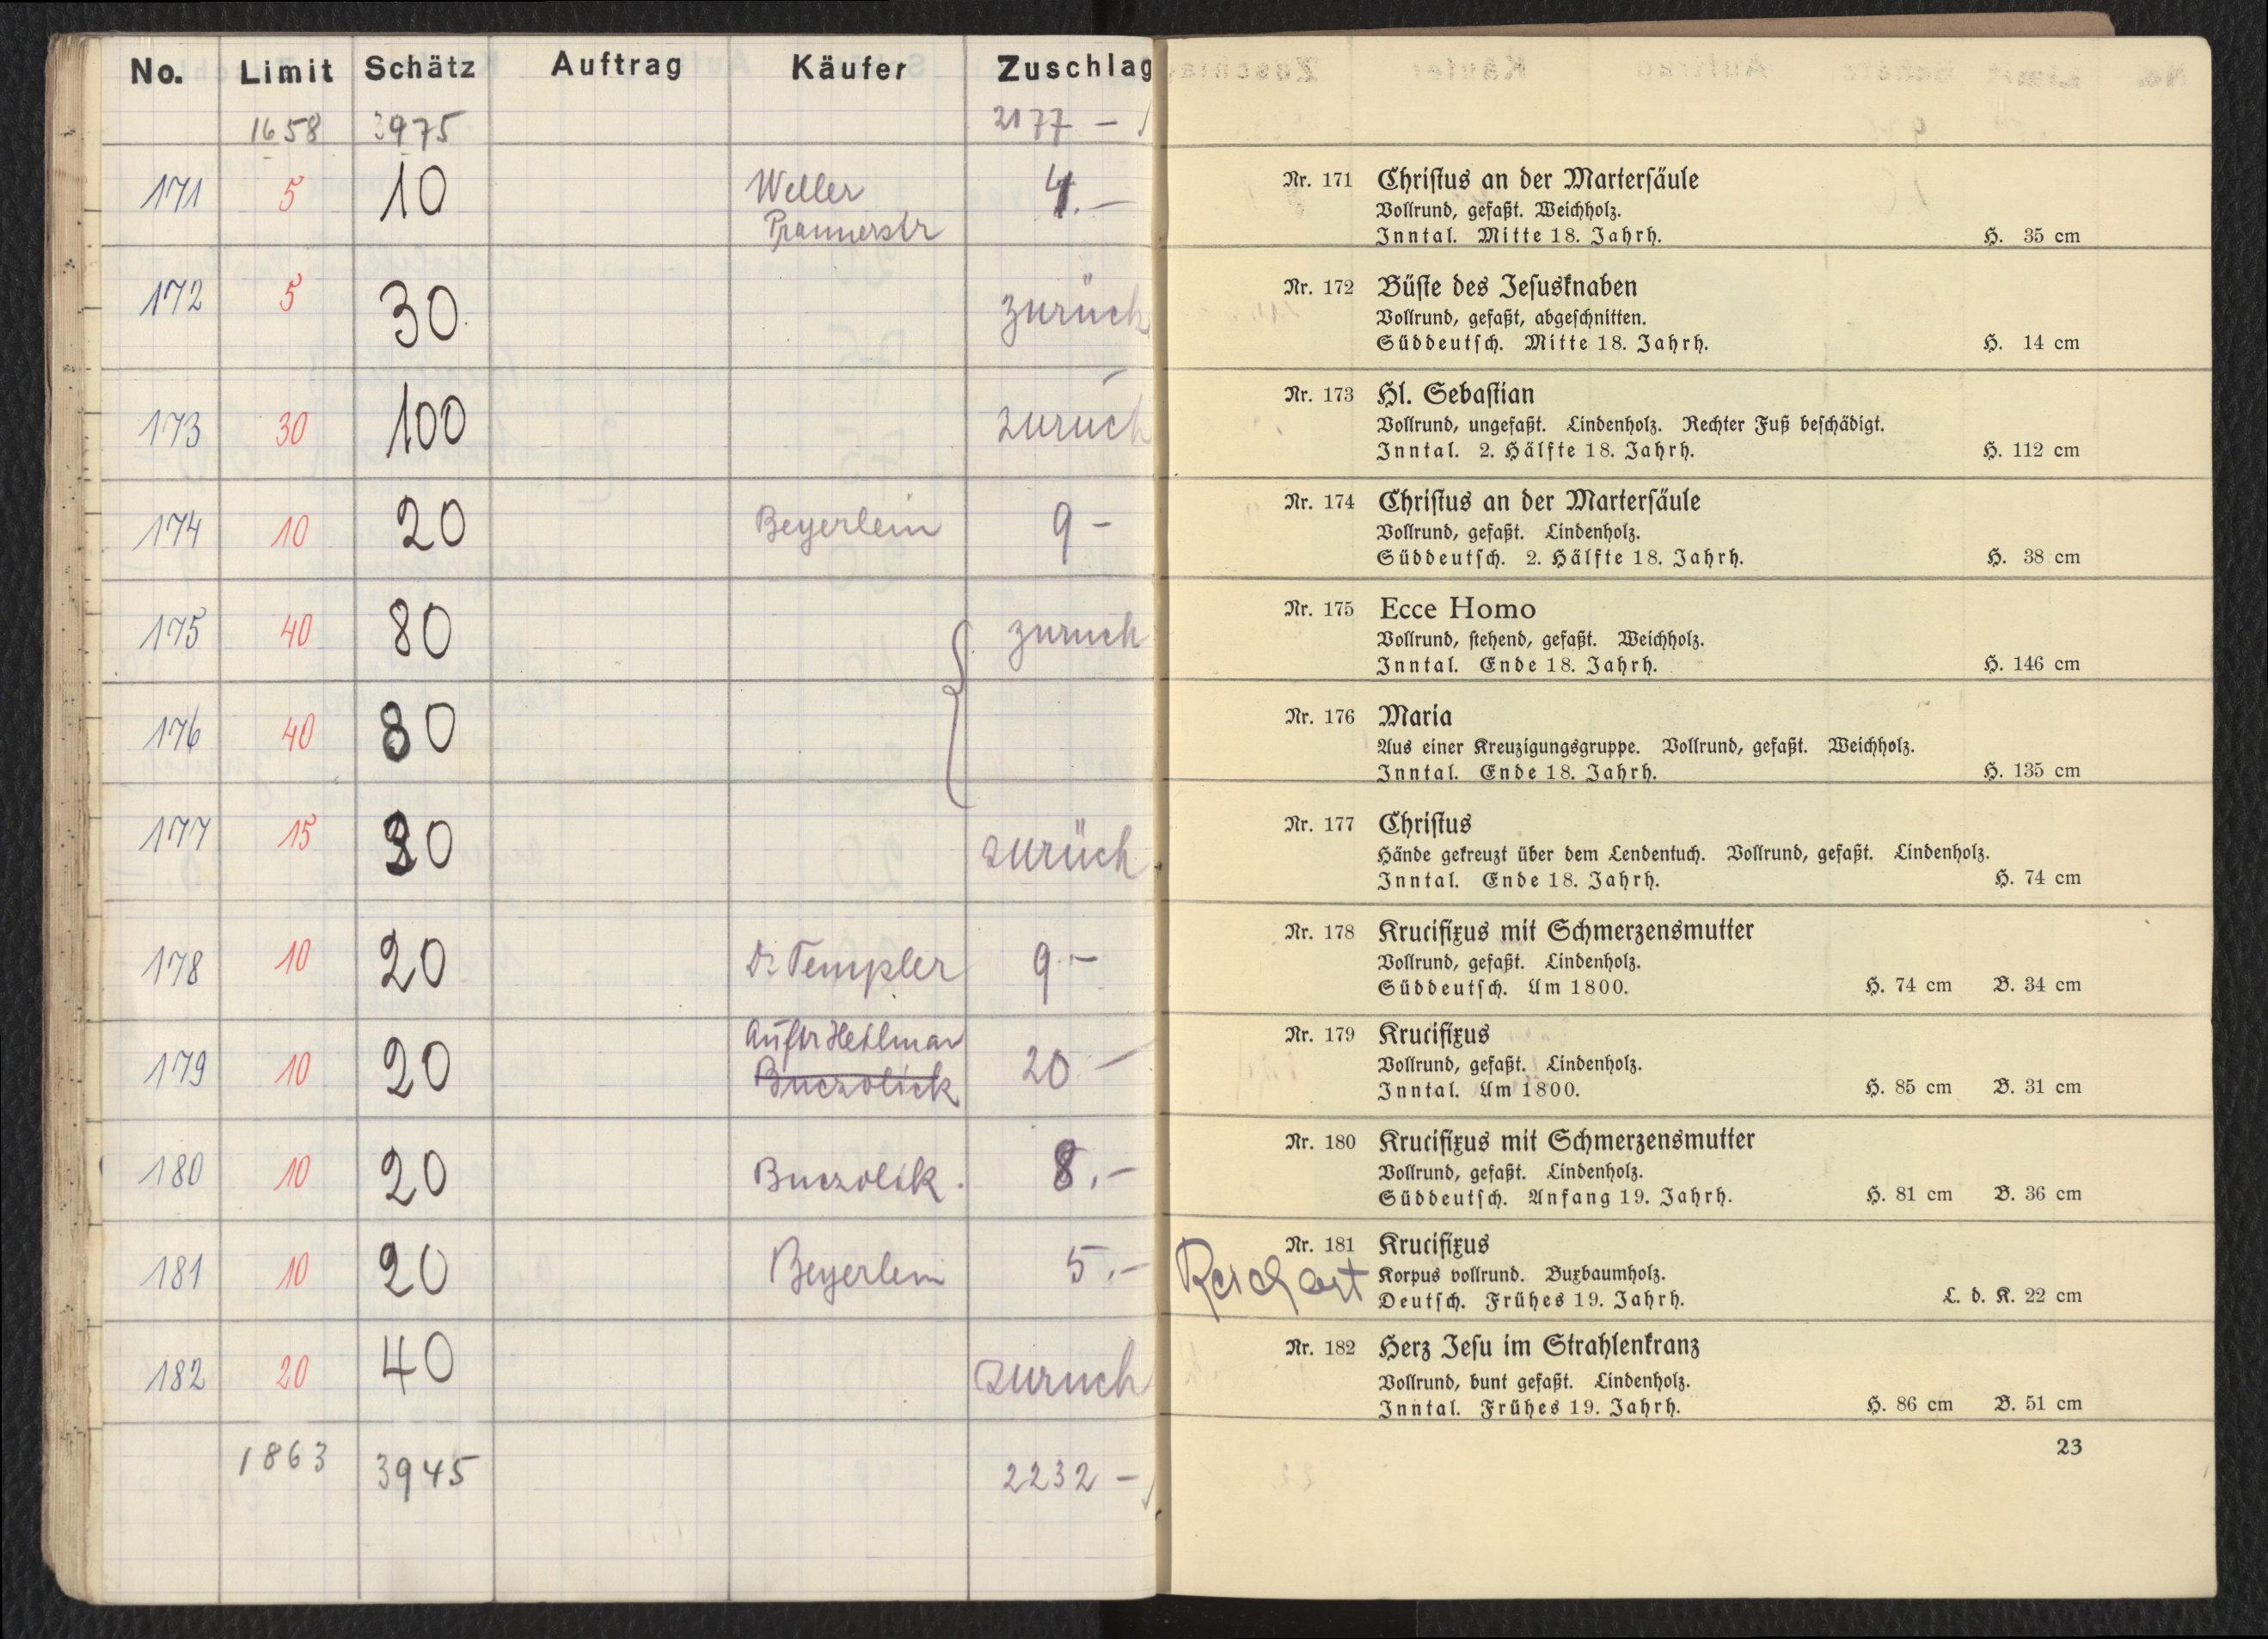 No. Limit Schätz Auftrag Käufer Zuschlag
1658 3975 2177 -
171 5 10 Weller 4.-
Prannerstr
172 5 30 zurück
173 30 100 zurück
174 10 20 Beyerlein 9 -
175 40 80 zurück
176 40 80
177 15 30 zurück
178 10 20 Dr Templer 9.-
179 10 20 Auftr Heilman 20 -
Buczolick
180 10 20 Buczolik. 8.-
181 10 20 Beyerlein 5.-
182 20 40 zurück
1863 3945 2232 -
Nr. 171 Chriſtus an der Marterſäule
Vollrund, gefaßt. Weichholz.
Inntal. Mitte 18. Jahrh. H. 35 cm
Nr. 172 Büſte des Jeſusknaben
Vollrund, gefaßt, abgeſchnitten.
Süddeutſch. Mitte 18. Jahrh. H. 14 cm
Nr. 173 Hl. Sebaſtian
Vollrund, ungefaßt. Lindenholz. Rechter Fuß beſchädigt.
Inntal. 2. Hälfte 18. Jahrh. H. 112 cm
Nr. 174 Chriſtus an der Marterſäule
Vollrund, gefaßt. Lindenholz.
Süddeutſch. 2. Hälfte 18. Jahrh. H. 38 cm
Nr. 175 Ecce Homo
Vollrund, ſtehend, gefaßt. Weichholz.
Inntal. Ende 18. Jahrh. H. 146 cm
Nr. 176 Maria
Aus einer Kreuzigungsgruppe. Vollrund, gefaßt. Weichholz.
Inntal. Ende 18. Jahrh. H. 135 cm
Nr. 177 Chriſtus
Hände gekreuzt über dem Lendentuch. Vollrund, gefaßt. Lindenholz.
Inntal. Ende 18. Jahrh. H. 74 cm
Nr. 178 Krucifixus mit Schmerzensmutter
Vollrund, gefaßt. Lindenholz.
Süddeutſch. Um 1800. H. 74 cm B. 34 cm
Nr. 179 Krucifixus
Vollrund, gefaßt. Lindenholz.
Inntal. Um 1800. H. 85 cm B. 31 cm
Nr. 180 Krucifixus mit Schmerzensmutter
Vollrund, gefaßt. Lindenholz.
Süddeutſch. Anfang 19. Jahrh. H. 81 cm B. 36 cm
Nr. 181 Krucifixus
Reichart Korpus vollrund. Buxbaumholz.
Deutſch. Frühes 19. Jahrh. L. d. K. 22 cm
Nr. 182 Herz Jeſu im Strahlenkranz
Vollrund, bunt gefaßt. Lindenholz.
Inntal. Frühes 19. Jahrh. H. 86 cm B. 51 cm
23